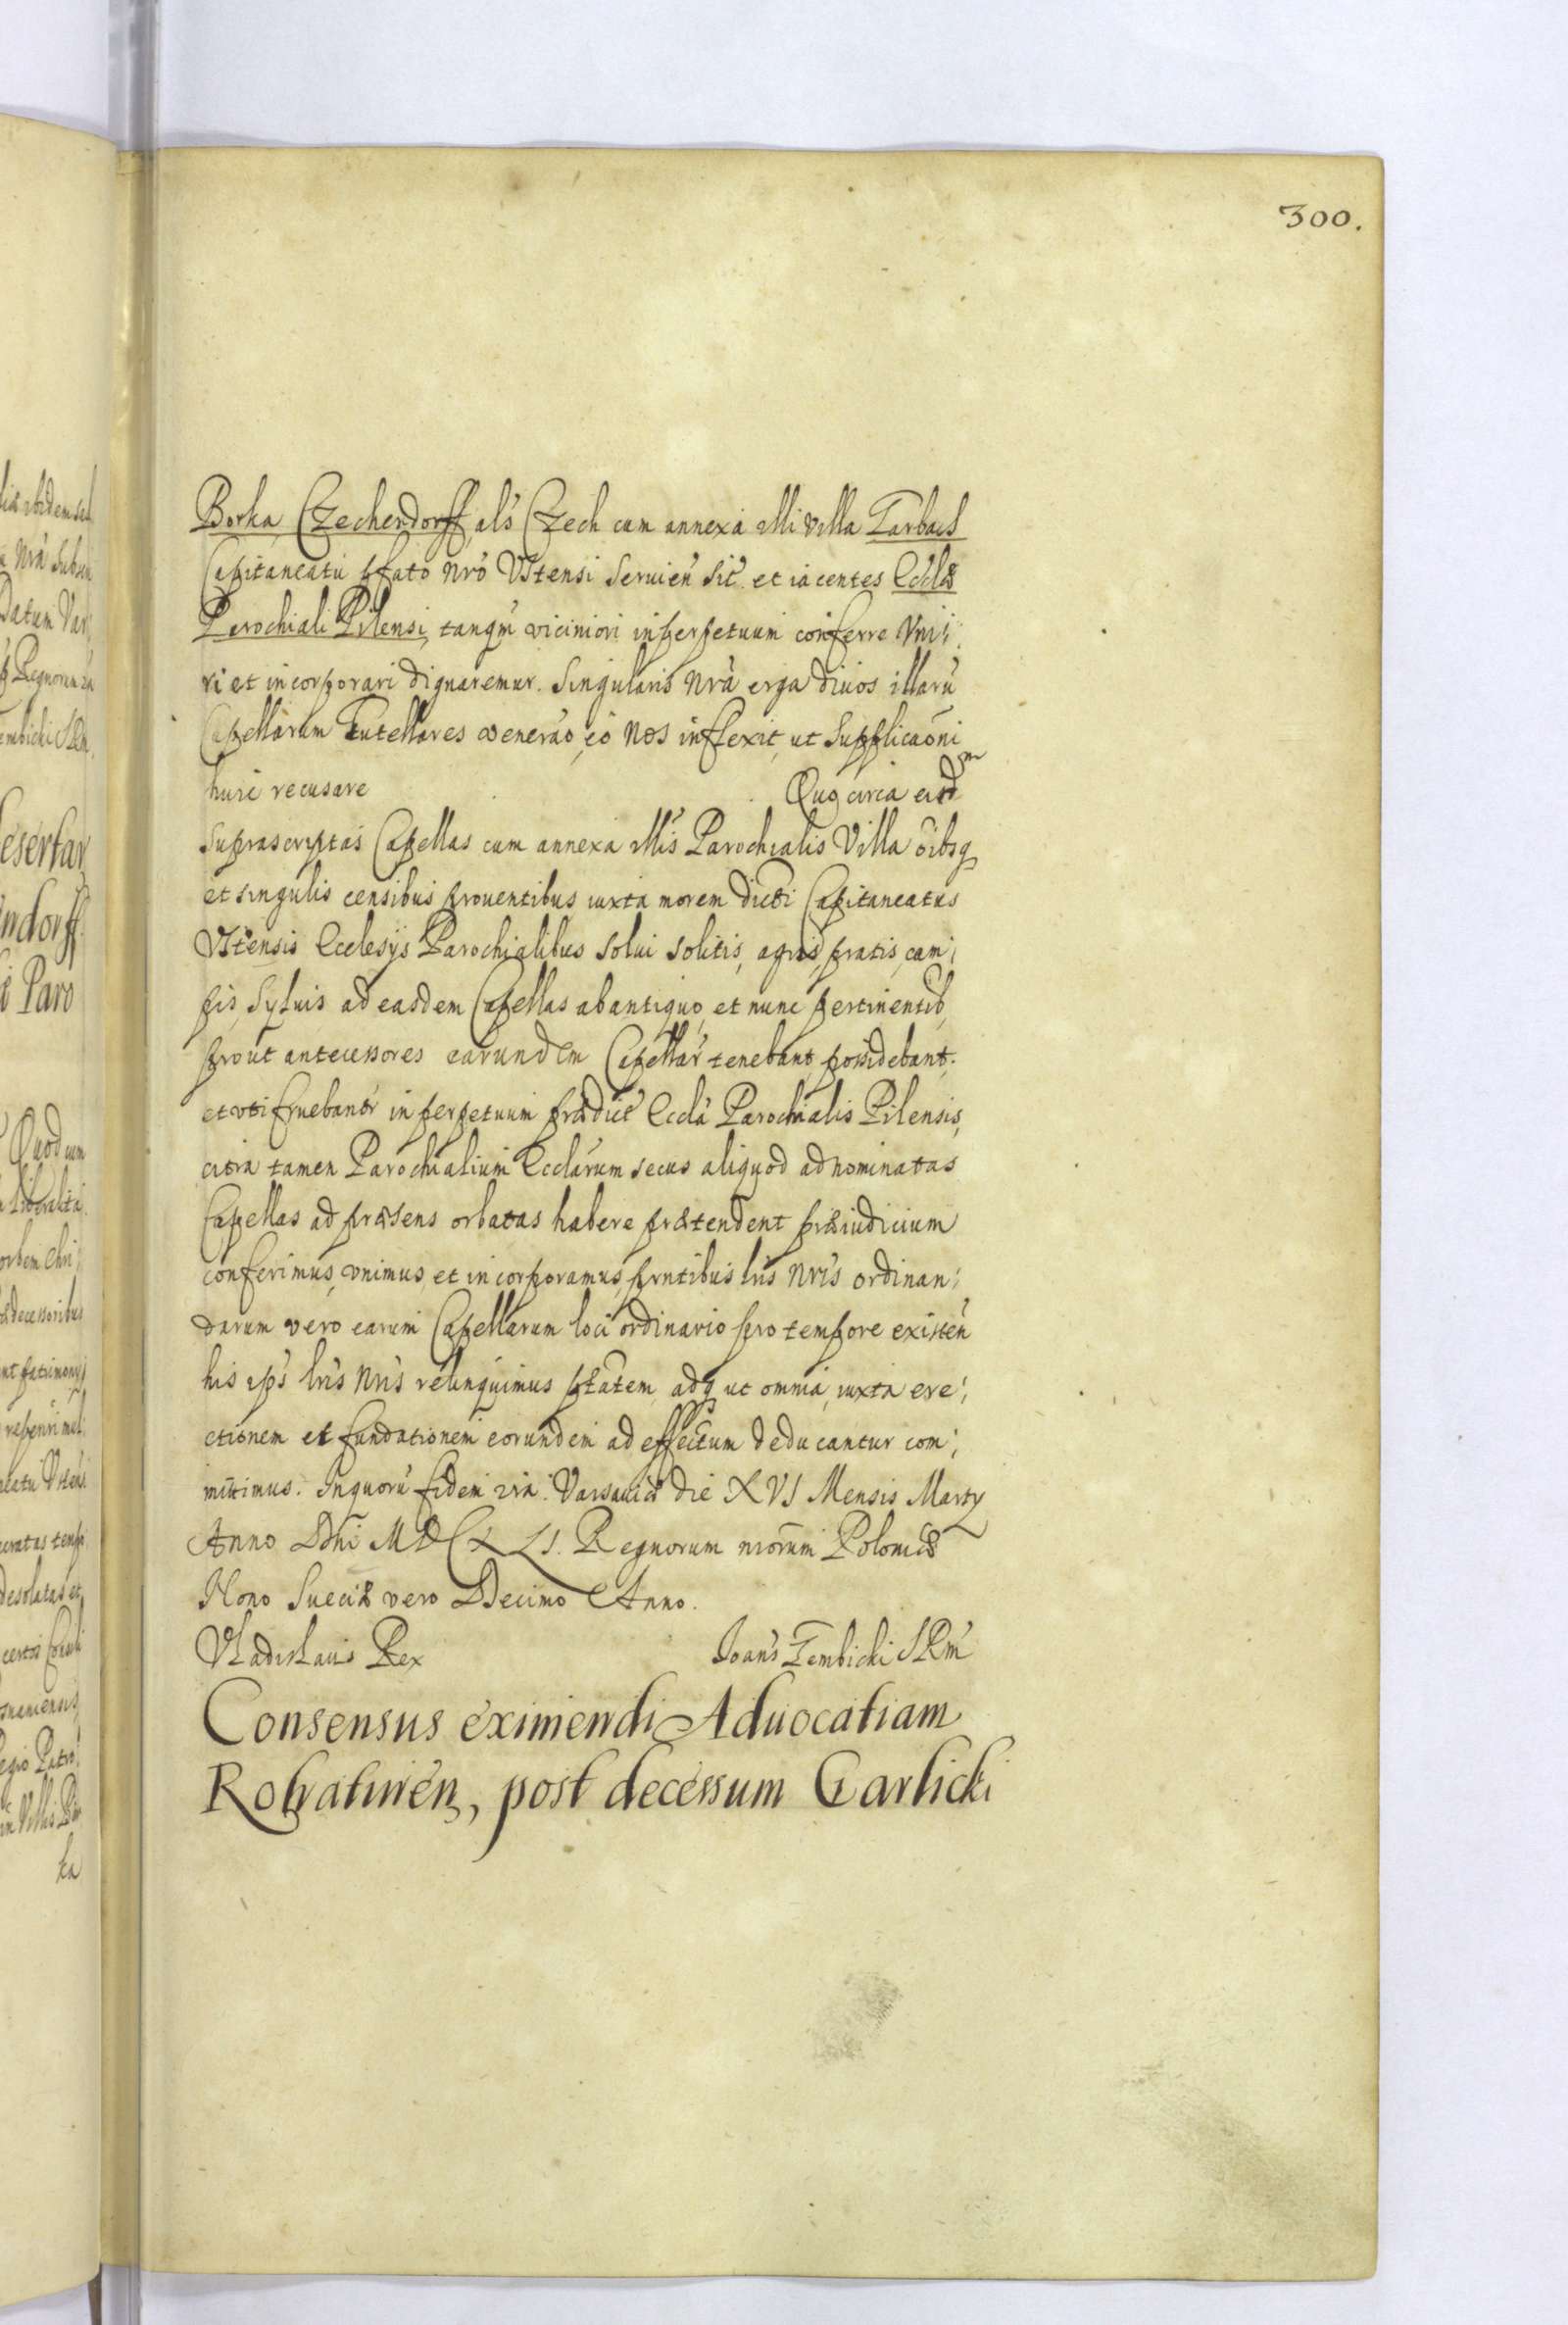 300.
Borka Czechendorff als Czech cum annexa illi villa Tarbach
Capitaneatu pfato nro Vstensi seruien sit et iacentes Ecclæ
Parochiali Pilensi, tanqm viciniori in perpetuum conferre Vni¡
ri et incorporari dignaremur. Singularis nra erga diuos illarũ
Capellarum Tutellares venerao, eo nos inflexit, ut supplicaõni
huic recusare Quo circa eisdm
suprascriptas Capellas cum annexa illis Parochialis Villa oibsq
et singulis censibus prouentibus iuxta morem dicti Capitaneatus
Vstensis Ecclesijs Parochialibus solui solitis, agris, pratis, cam¡
pis, syluis ad easdem Capellas ab antiquo, et nunc pertinentib,
prout antecessores earundem Capellar tenebant, possidebant.
et vti fruebantr in perpetuum prædict Eccla Parochialis Pilensis,
citra tamen Parochialium Ecclarum secus aliquod ad nominatas
Capellas ad præsens orbatas habere prætendent præiudicium
conferimus, vnimus, et incorporamus, prntibus lris nris ordinan¡
darum vero earum Capellarum loci ordinario pro tempore existen
his ips lris nris relinquimus ptatem, adq ut omnia, iuxta ere¡
ctionem et fundationem eorundem ad effectum deducantur com¡
mittimus. In quorũ fidem Varsauiæ die XVI Mensis Martij
Anno Dni MDCXLI. Regnorum nrorum Poloniæ
Nono Sueciæ vero Decimo Anno.
Vladislaus Rex Joans Gembicki SRm
Consensus eximendi Aduocatiam
Rohatinen, post decessum Garlicki